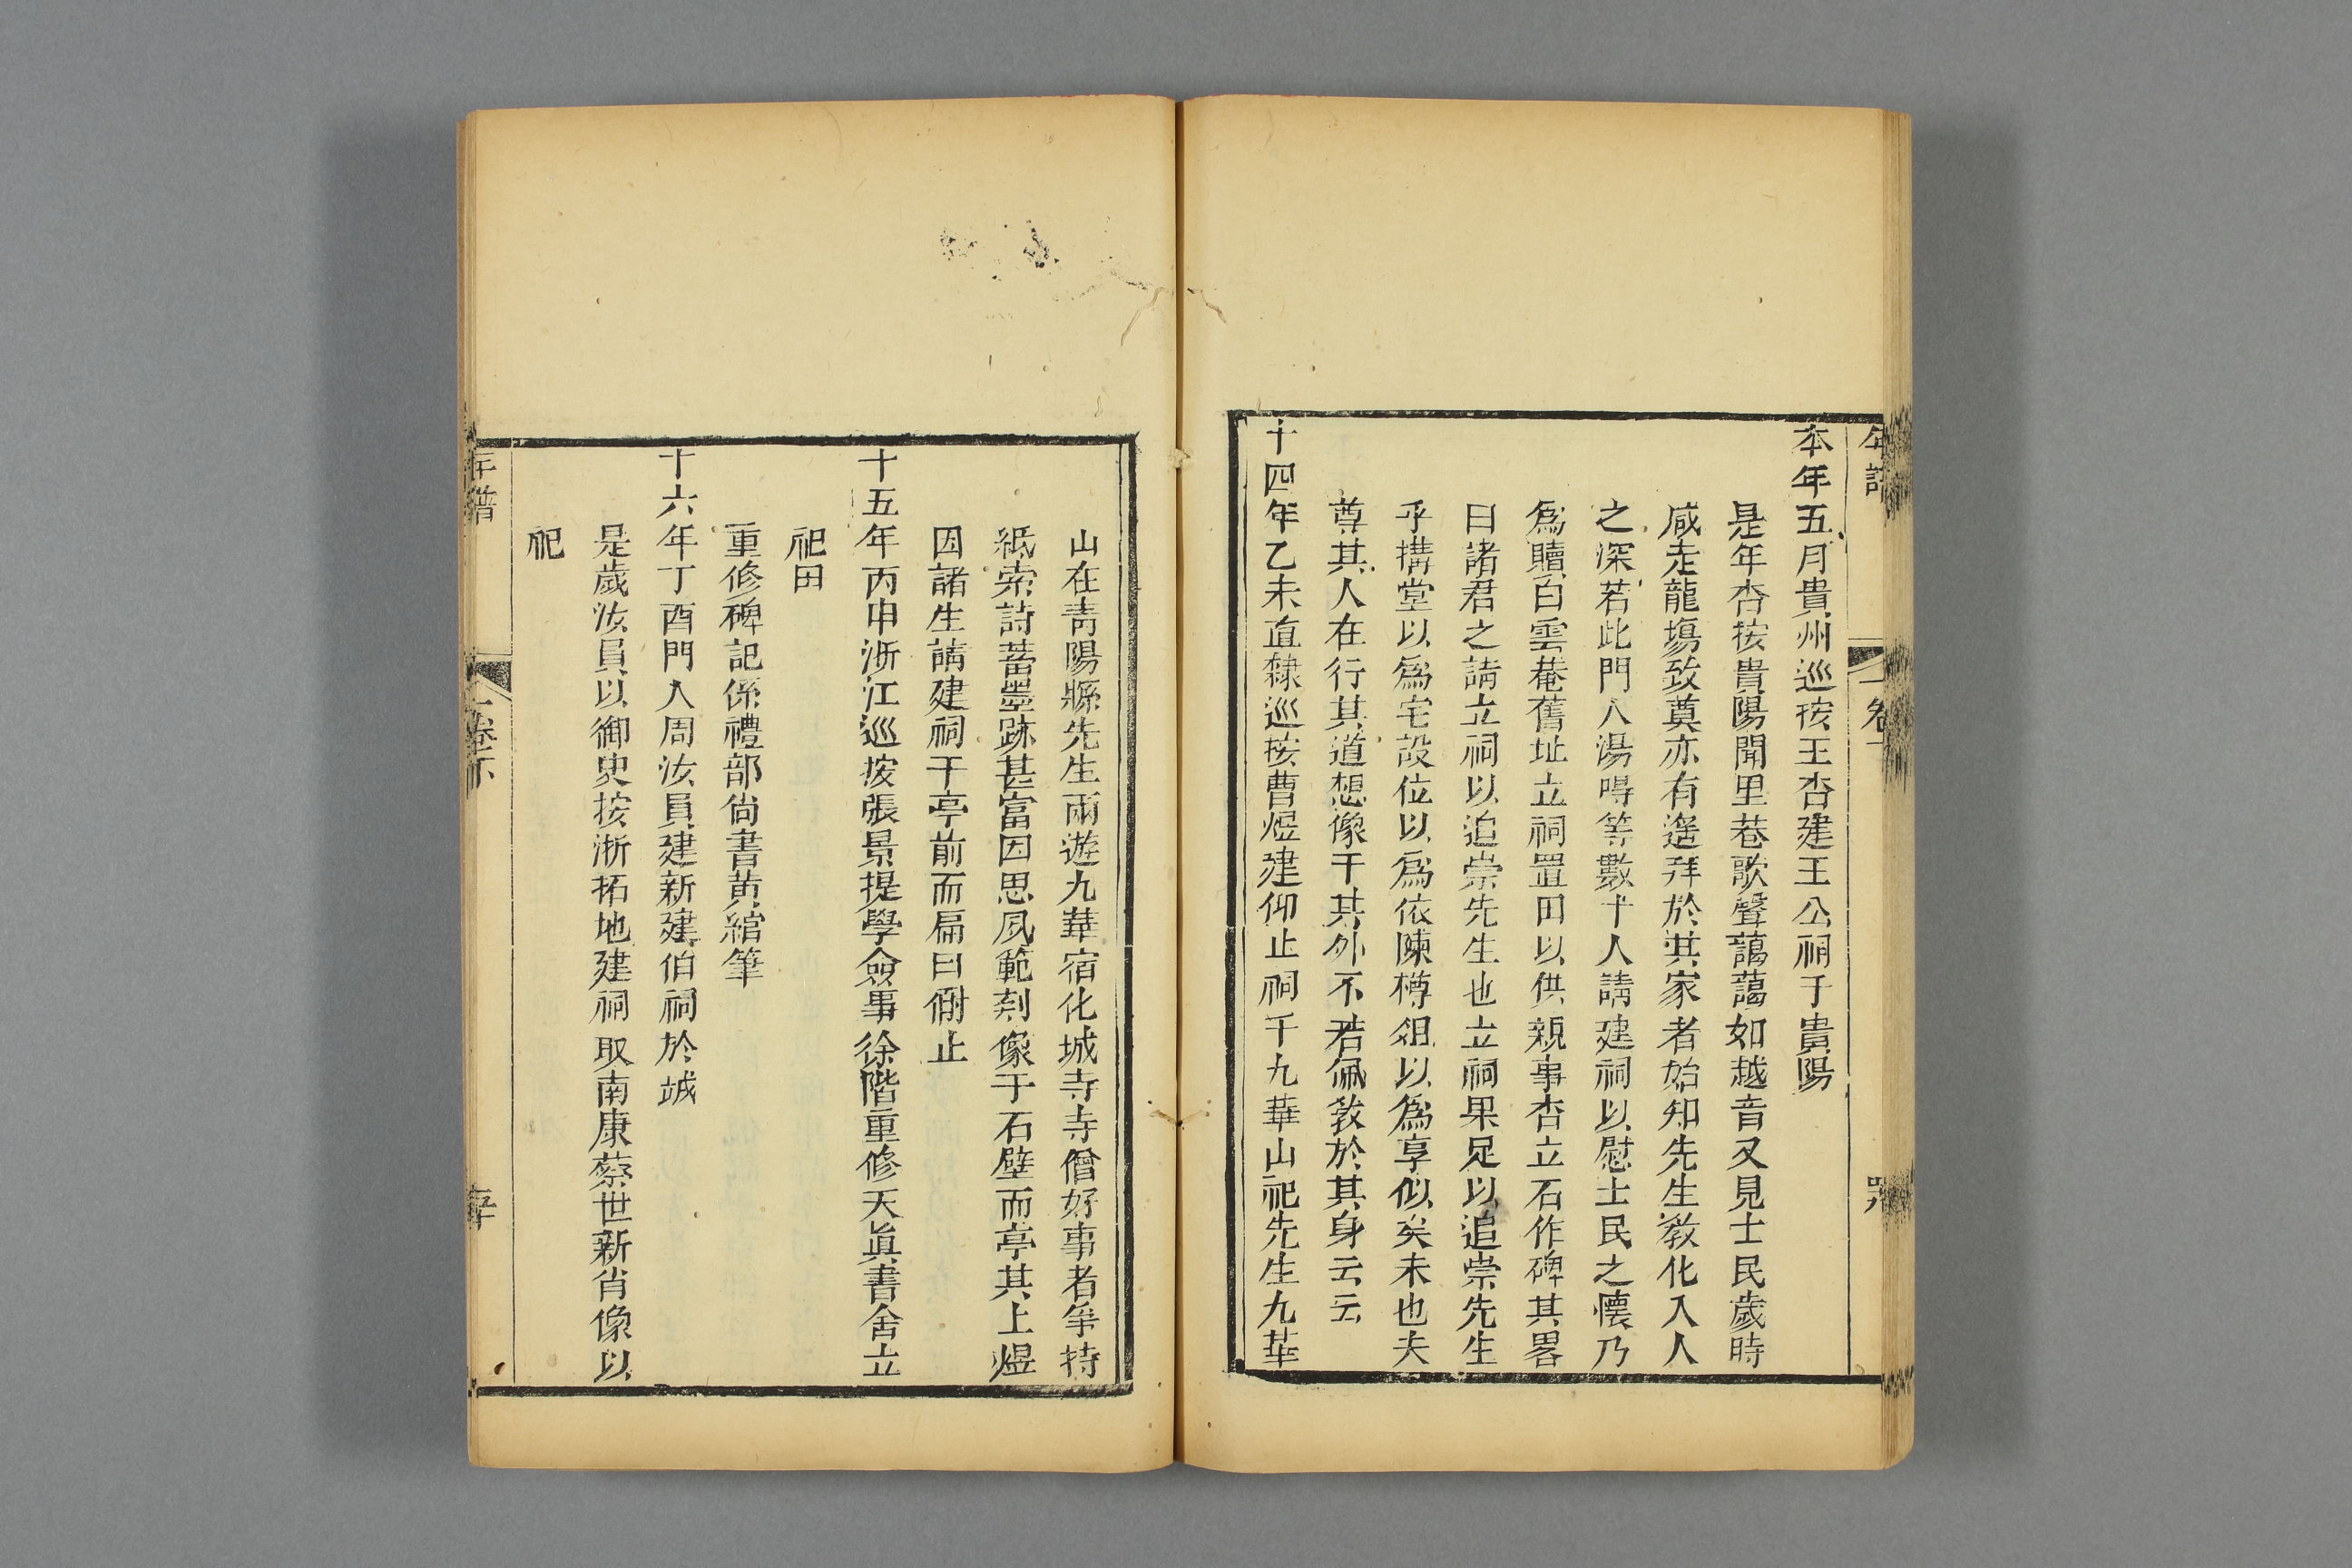 本年五月貴州巡按王杏建王公祠于貴陽
是年杏按貴陽聞里巷歌聲藹藹如越音又見士民歲時
咸走龍塲致奠亦有遙拜於其家者始知先生教化入人
之深若此門人湯㖡等數十人請建祠以慰士民之懷乃
爲贖白雲菴舊址立祠置田以供親事杏立石作碑其畧
曰諸君之請立祠以追崇先生也立祠果足以追崇先生
乎搆堂以爲宅設位以爲依陳樽俎以爲享似矣未也夫
尊其人在行其道想像于其外不若佩敎於其身云云
十四年乙未直隸巡按曹煜建仰止祠于九華山祀先生九華
山在靑陽縣先生兩遊九華宿化城寺寺僧好事者争持
紙索詩蓄墨跡甚富因思夙範刻像于石壁而亭其上煜
因諸生請建祠于亭前而扁曰仰止
十五年丙申浙江巡按張景提學僉事徐階重修天眞書舍立
祀田
重修碑記係禮部尙書黄綰筆
十六年丁酉門人周汝員建新建伯祠於越
是歲汝員以御史按浙拓地建祠取南康蔡世新肖像以
祀
年譜
卷下